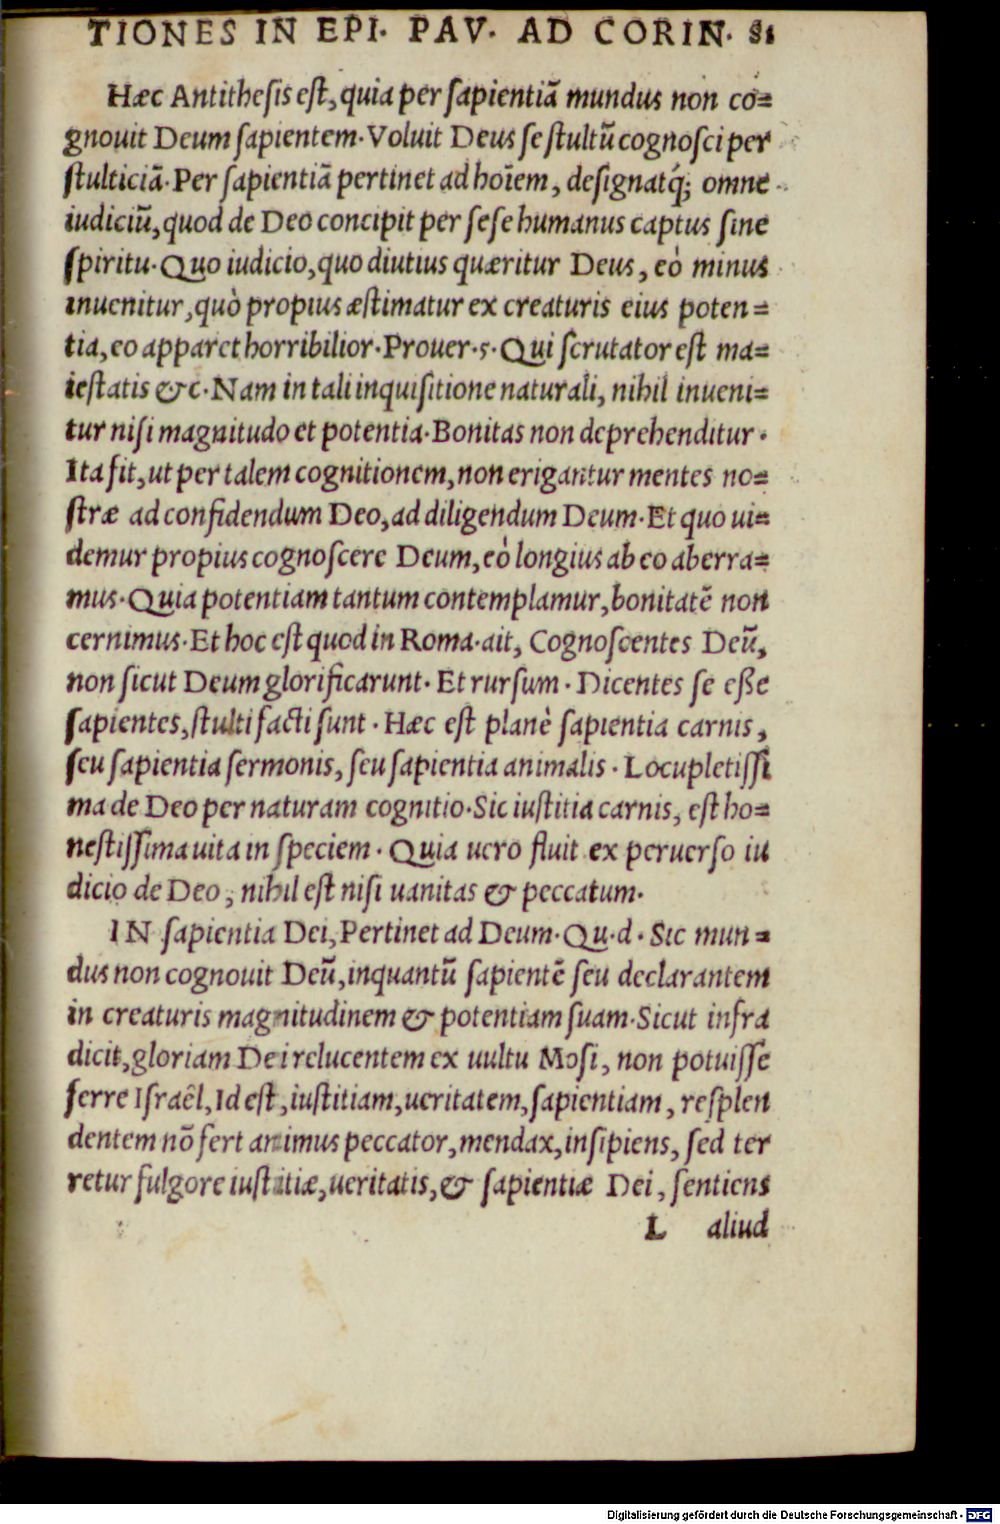 TIONES IN EPI· PAV· AD CORIN· 81
Hæc Antithesis est, quia per sapientiã mundus non co=
gnouit Deum sapientem· Voluit Deus se stultũ cognosci per
stulticiã· Per sapientiã pertinet ad hoīem, designatq́; omne
iudiciũ, quod de Deo concipit per sese humanus captus sine
spiritu· Quo iudicio, quo diutius quæritur Deus, eò minus
inuenitur, quò propius æstimatur ex creaturis eius poten=
tia, eo apparet horribilior· Prouer· 5· Qui scrutator est ma=
iestatis &c· Nam in tali inquisitione naturali, nihil inueni=
tur nisi magnitudo et potentia· Bonitas non deprehenditur·
Ita fit, ut per talem cognitionem, non erigantur mentes no=
stræ ad confidendum Deo, ad diligendum Deum· Et quo ui=
demur propius cognoscere Deum, eò longius ab eo aberra=
mus· Quia potentiam tantum contemplamur, bonitatẽ non
cernimus· Et hoc est quod in Roma· ait, Cognoscentes Deũ,
non sicut Deum glorificarunt· Et rursum· Dicentes se eße
sapientes, stulti facti sunt· Hæc est planè sapientia carnis,
seu sapientia sermonis, seu sapientia animalis· Locupletissi
ma de Deo per naturam cognitio· Sic iustitia carnis, est ho=
nestissima uita in speciem· Quia uero fluit ex peruerso iu
dicio de Deo, nihil est nisi uanitas & peccatum·
IN sapientia Dei, Pertinet ad Deum· Qu·d· Sic mun=
dus non cognouit Deũ, inquantũ sapientẽ seu declarantem
in creaturis magnitudinem & potentiam suam· Sicut infra
dicit, gloriam Dei relucentem ex uultu Mosi, non potuisse
ferre Israêl, Id est, iustitiam, ueritatem, sapientiam, resplen
dentem nõ fert animus peccator, mendax, insipiens, sed ter
retur fulgore iustitiæ, ueritatis, & sapientiæ Dei, sentiens
L aliud
Digitalisierung gefördert durch die Deutsche Forschungsgemeinschaft - DFG